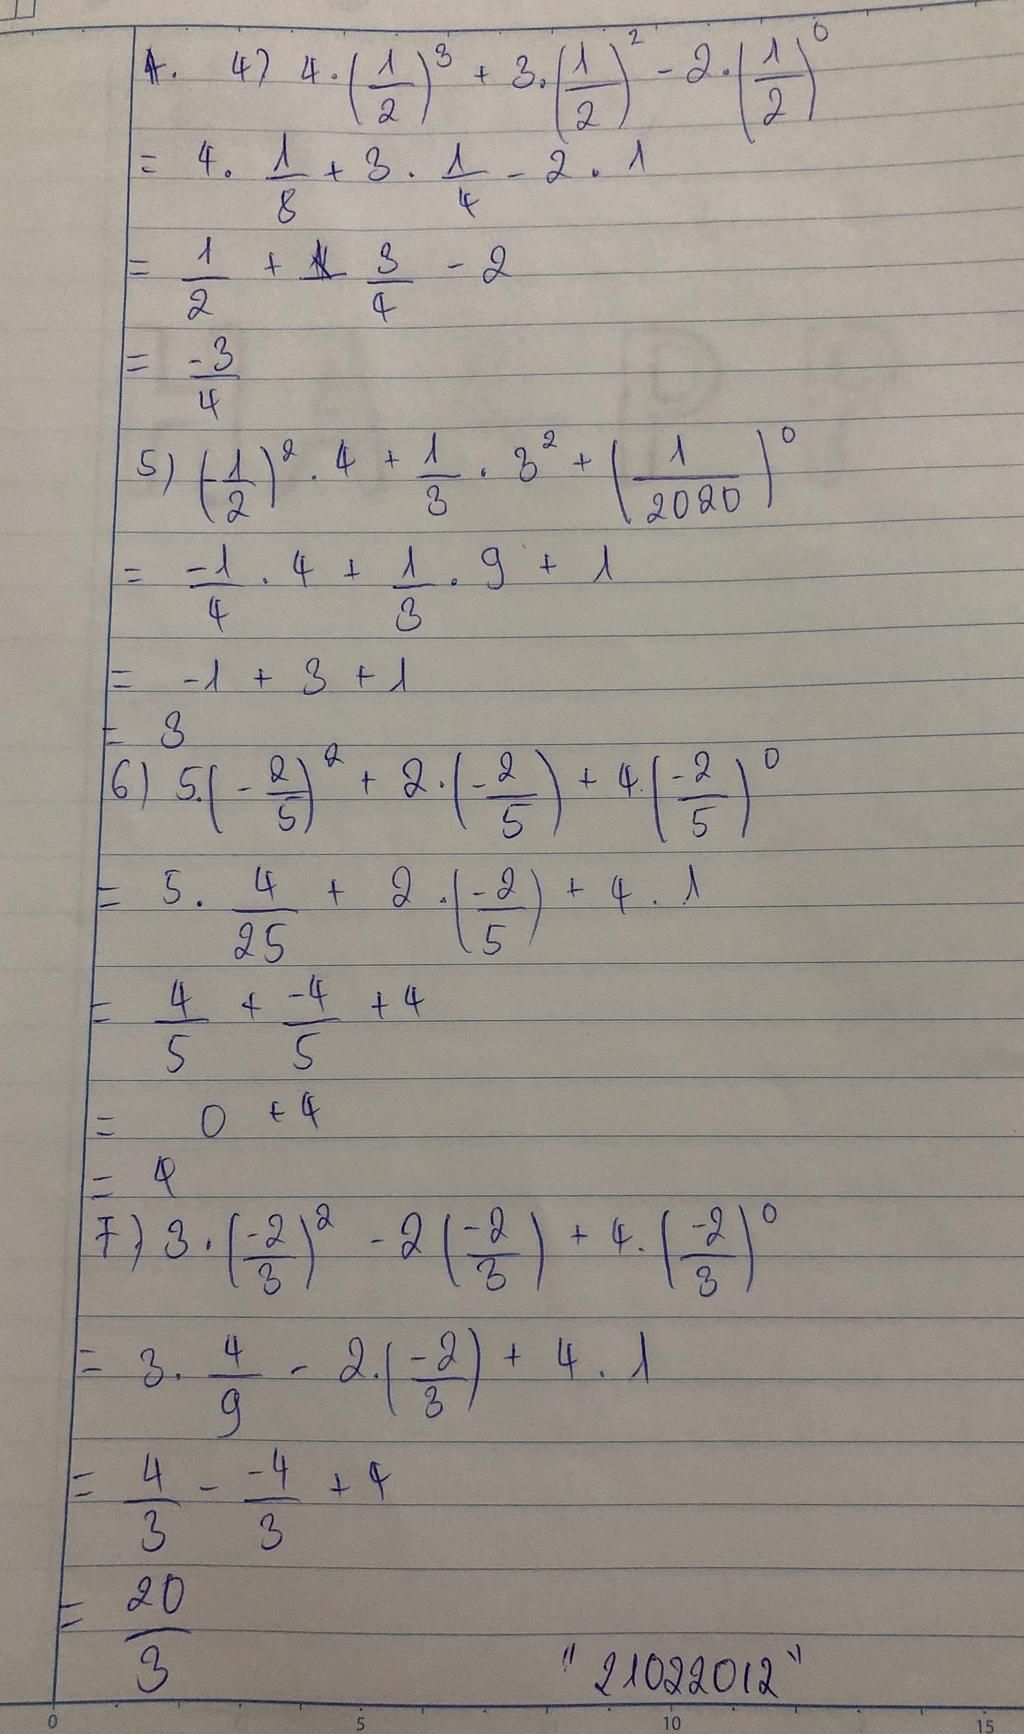 1. 4) 4.(1/2)³ + 3.(1/2)² - 2.(1/2)⁰
= 4. 1/8 + 3 . 1/4 - 2 . 1
= 1/2 + 3/4 - 2
= -3/4
5) (-1/2)² . 4 + 1/3 . 3² + (1/2020)⁰
= -1/4 . 4 + 1/3 . 9 + 1
= -1 + 3 + 1
= 3
6) 5.(-2/5)² + 2.(-2/5) + 4.(-2/5)⁰
= 5. 4/25 + 2 .(-2/5) + 4 . 1
= 4/5 + -4/5 + 4
= 0 + 4
= 4
7) 3.(-2/3)² - 2(-2/3) + 4.(-2/3)⁰
= 3. 4/9 - 2.(-2/3) + 4 . 1
= 4/3 - -4/3 + 4
= 20/3
"21022012"
0 5 10 15